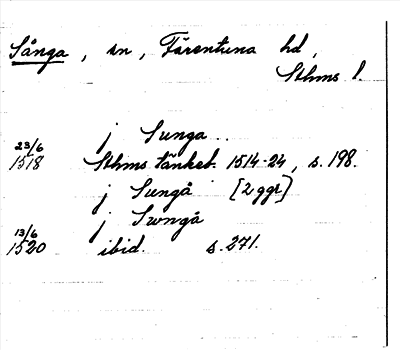 Sånga, sn, Färentuna hd,
Sthms l.
j Sunga..
23/6
1518 Sthms tänkeb. 1514-24, s. 198.
j Sungå [2 ggr]
j Swngå
13/6
1520 ibid. s. 271.